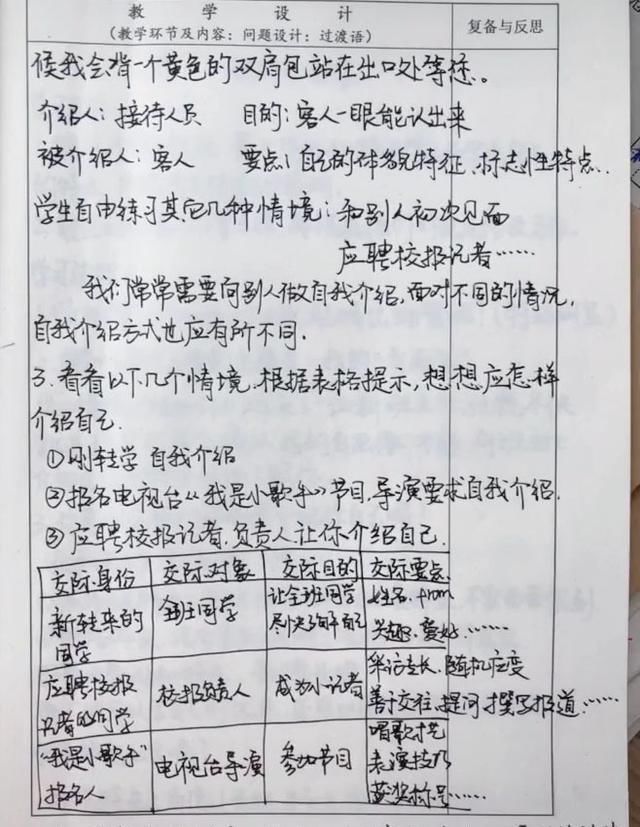 教 学 设 计
(教学环节及内容：问题设计：过渡语)
复备与反思
候我会背一个黄色的双肩包站在出口处等待。
介绍人：接待人员 目的：客人一眼能认出来
被介绍人：客人 要点：自己的体貌特征、标志性特点..
学生自由练习其它几种情境：和别人初次见面
应聘校报记者……
我们常常需要向别人做自我介绍，面对不同的情况，
自我介绍方式也应有所不同.
3.看看以下几个情境.根据表格提示，想想应怎样
介绍自己.
①刚转学 自我介绍
②报名电视台《我是小歌手》节目，导演要求自我介绍.
③应聘校报记者.负责人让你介绍自己.
交际身份 交际对象 交际目的 交际要点
新转来的同学 全班同学 让全班同学尽快了解自己 姓名、from 兴趣、爱好……
应聘校报记者的同学 校报负责人 成为小记者 采访专长、随机应变 善于交往、提问、撰写报道……
"我是小歌手"报名人 电视台导演 参加节目 唱歌才艺 表演技巧 获奖称号……